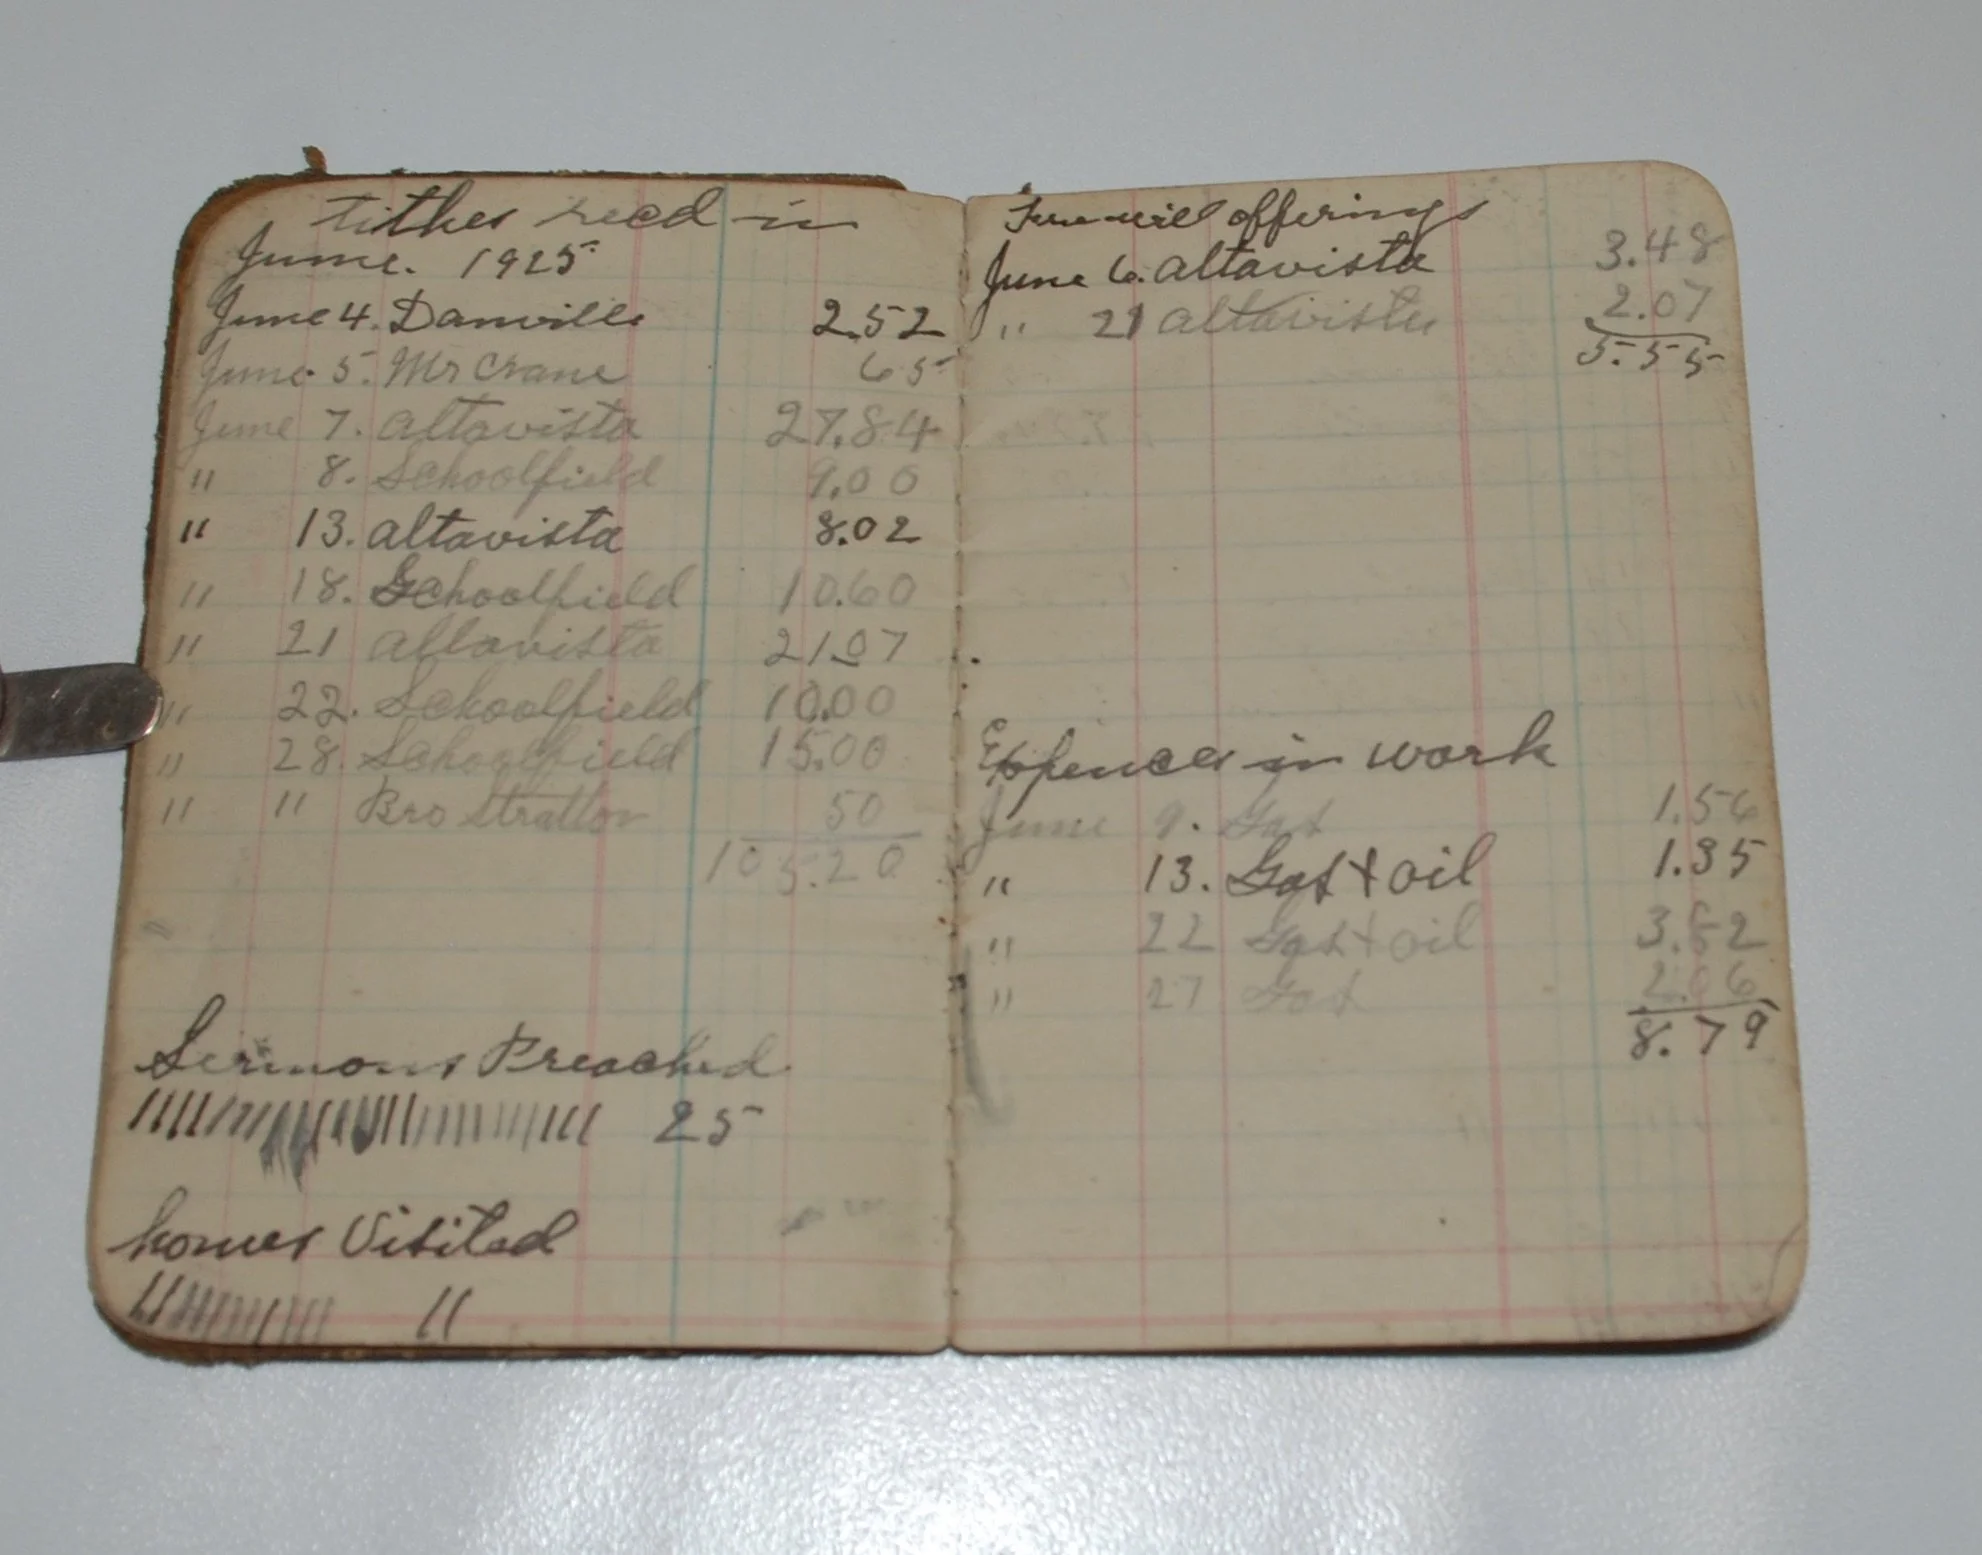 tithes recd in
June. 1925
June 4. Danville 2.52
June 5. Mr Crane 65
June 7. Altavista 27.84
" 8. Schoolfield 9.00
" 13. Altavista 8.02
" 18. Schoolfield 10.60
" 21 Altavista 21.07
" 22. Schoolfield 10.00
" 28. Schoolfield 15.00
" " Bro Stratton 50
105.20
Sermons Preached
25
homes Visited
11
Free will offerings
June 6. Altavista 3.48
" 21 Altavista 2.07
5.55
Expences in work
June 9. Gas 1.56
" 13. Gas + oil 1.35
" 22 Gas + oil 3.82
" 27 Gas 2.06
8.79